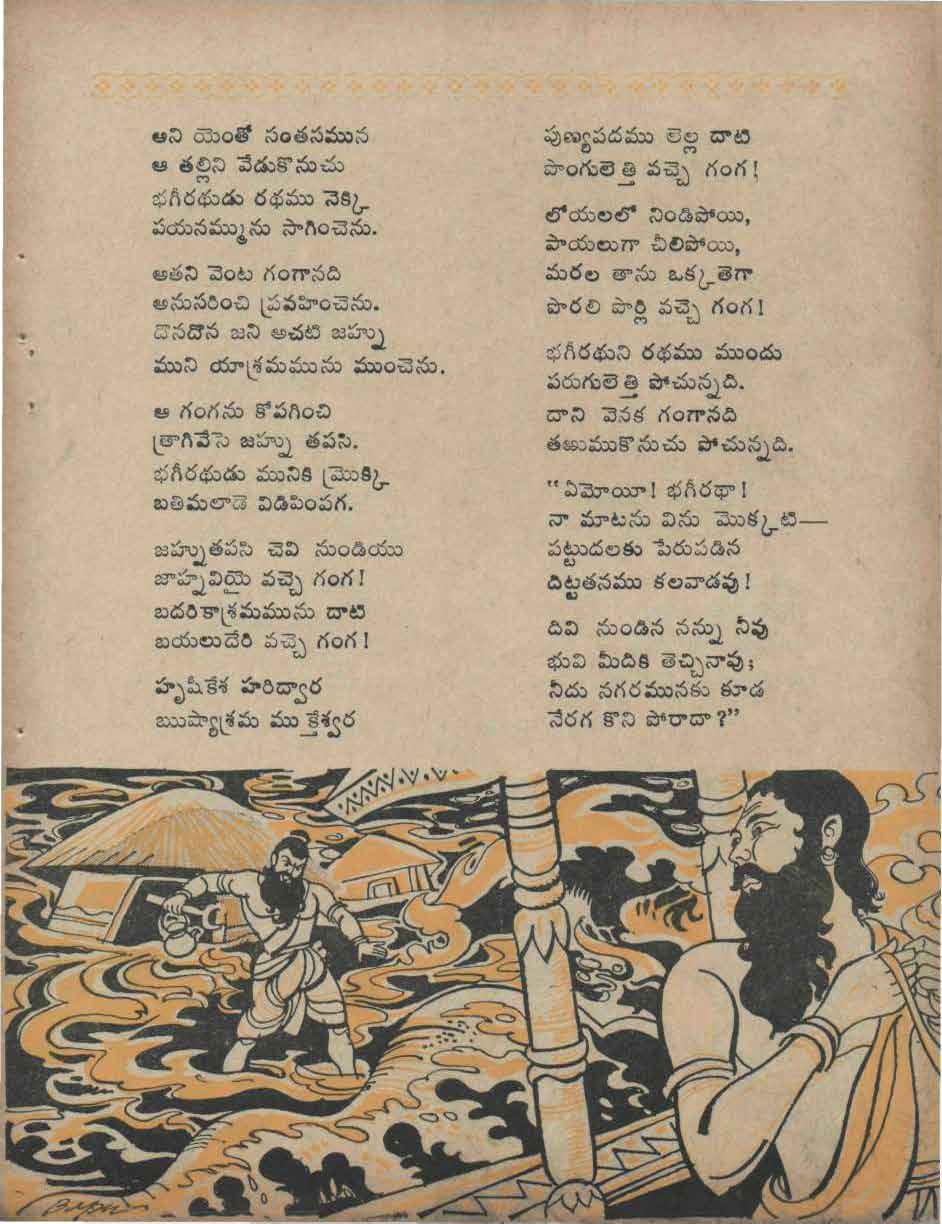 అని యెంతో సంతసమున
ఆ తల్లిని వేడుకొనుచు
భగీరథుడు రథము నెక్కి
పయనమ్మును సాగించెను.
అతని వెంట గంగానది
అనుసరించి ప్రవహించెను.
దొనదొన జని అచటి జహ్ను
ముని యాశ్రమమును ముంచెను.
ఆ గంగను కోపగించి
త్రాగివేసె జహ్ను తపసి.
భగీరథుడు మునికి మ్రొక్కి
బతిమలాడె విడిపింపగ.
జహ్నుతపసి చెవి నుండియు
జాహ్నవియై వచ్చె గంగ!
బదరికాశ్రమమును దాటి
బయలుదేరి వచ్చె గంగ!
హృషీకేశ హరిద్వార
ఋష్యాశ్రమ ముక్తేశ్వర
పుణ్యపదము లెల్ల దాటి
పొంగులెత్తి వచ్చె గంగ!
లోయలలో నిండిపోయి,
పాయలుగా చీలిపోయి,
మరల తాను ఒక్కతెగా
పొరలి పొర్లి వచ్చె గంగ!
భగీరథుని రథము ముందు
పరుగులెత్తి పోచున్నది.
దాని వెనక గంగానది
తఱుముకొనుచు పోచున్నది.
“ఏమోయీ! భగీరథా!
నా మాటను విను మొక్కటి—
పట్టుదలకు పేరుపడిన
దిట్టతనము కలవాడవు!
దివి నుండిన నన్ను నీవు
భువి మీదికి తెచ్చినావు;
నీదు నగరమునకు కూడ
నేరగ కొని పోరాదా?”
Bapu